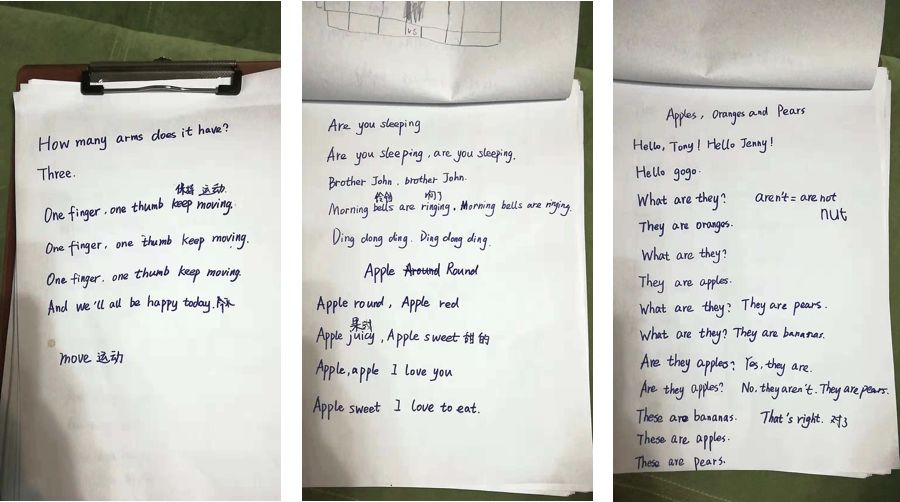 How many arms does it have?
Three.
保持 运动.
One finger, one thumb keep moving.
One finger, one thumb keep moving.
One finger, one thumb keep moving.
And we'll all be happy today.
move 运动
vs
Are you sleeping
Are you sleeping, are you sleeping.
Brother John, brother John.
铃铛 响了
Morning bells are ringing, Morning bells are ringing.
Ding dong ding. Ding dong ding.
Apple Around Round
Apple round, Apple red
果汁
Apple juicy, Apple sweet 甜的
Apple, apple I love you
Apple sweet I love to eat.
Apples, Oranges and Pears
Hello, Tony! Hello Jenny!
Hello gogo.
What are they? aren't = are not
nut
They are oranges.
What are they?
They are apples.
What are they? They are pears.
What are they? They are bananas.
Are they apples? Yes, they are.
Are they apples? No, they aren't. They are pears.
These are bananas. That's right. 对了
These are apples.
These are pears.